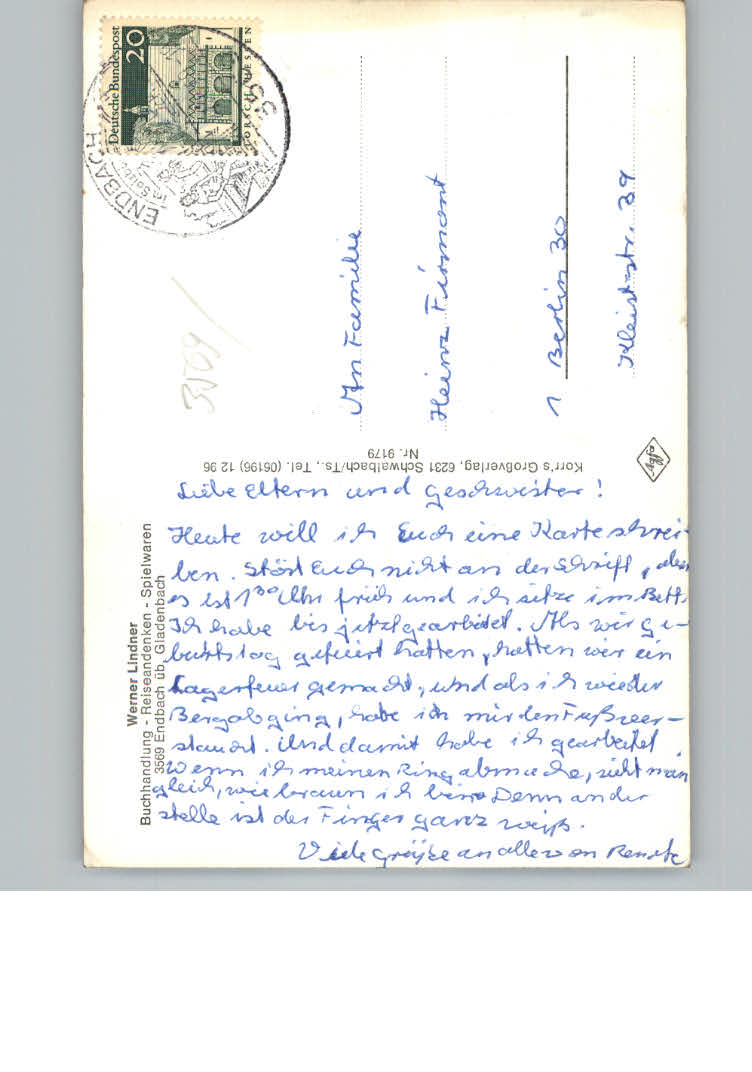 Deutsche Bundespost
20
LORSCH HESSEN
ENDBACH
355
3569
An Familie
Heinz Firmont
1 Berlin 30
Kleiststr. 39
Agfa
Korr's Großverlag, 6231 Schwalbach/Ts., Tel. (06196) 12 96
Nr. 9179
Werner Lindner
Buchhandlung - Reiseandenken - Spielwaren
3569 Endbach üb. Gladenbach
Liebe Eltern und Geschwister!
Heute will ich Euch eine Karte schrei-
ben. Stört Euch nicht an der Schrift, aber
es ist 1³⁰ Uhr früh und ich sitze im Bett.
Ich habe bis jetzt gearbeitet. Als wir Ge-
burtstag gefeiert hatten, hatten wir ein
Lagerfeuer gemacht, und als ich wieder
Bergab ging, habe ich mir den Fuß ver-
staucht. Und damit habe ich gearbeitet
Wenn ich meinen Ring abmache, sieht man
gleich, wie braun ich bin. Denn an der
stelle ist der Finger ganz weiß.
Viele Grüße an alle von Renate